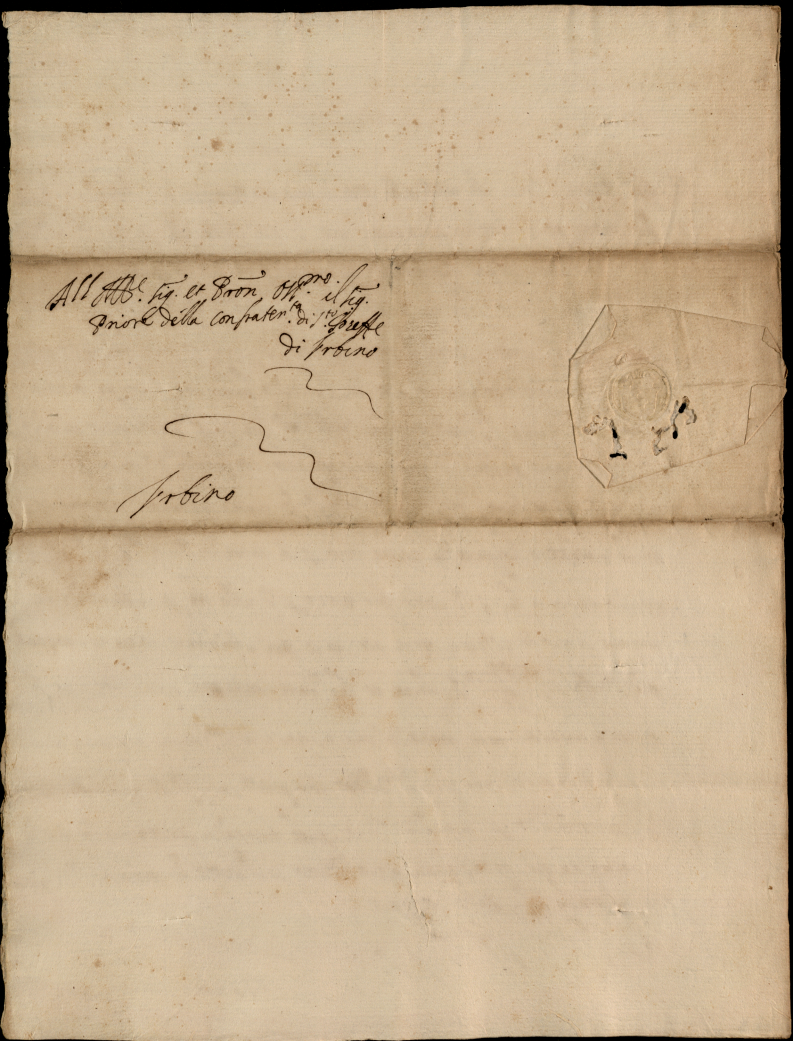 All Ill.e Sig. et Pron Oss.mo il Sig.
Priore della confrater.ta di S.to Joseffe
di Urbino
Urbino